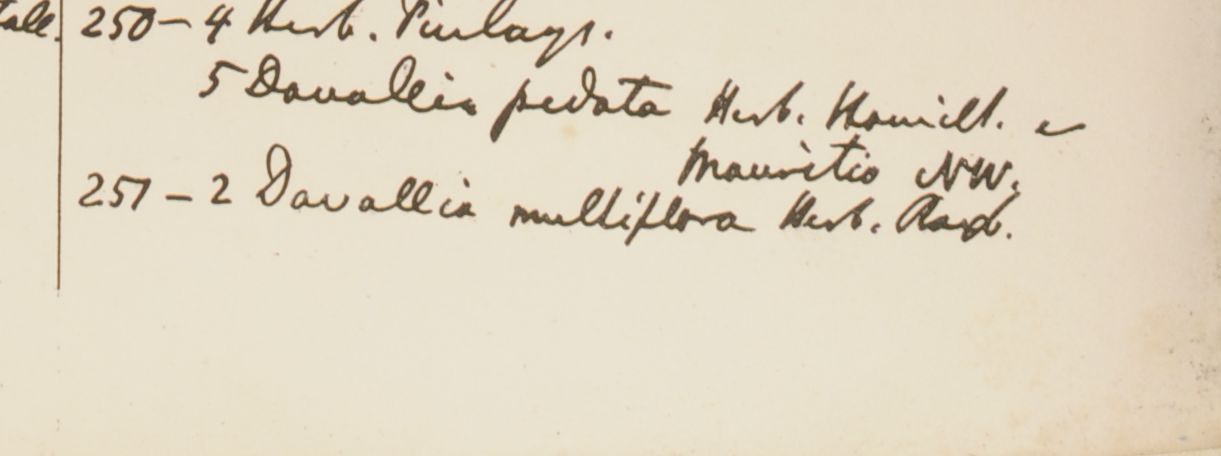 tall. 250 – 4 Herb. Finlays.
5 Davallia pedata Herb. Hamilt. e
Mauritio NW.
251 – 2 Davallia multiflora Herb. Roxb.